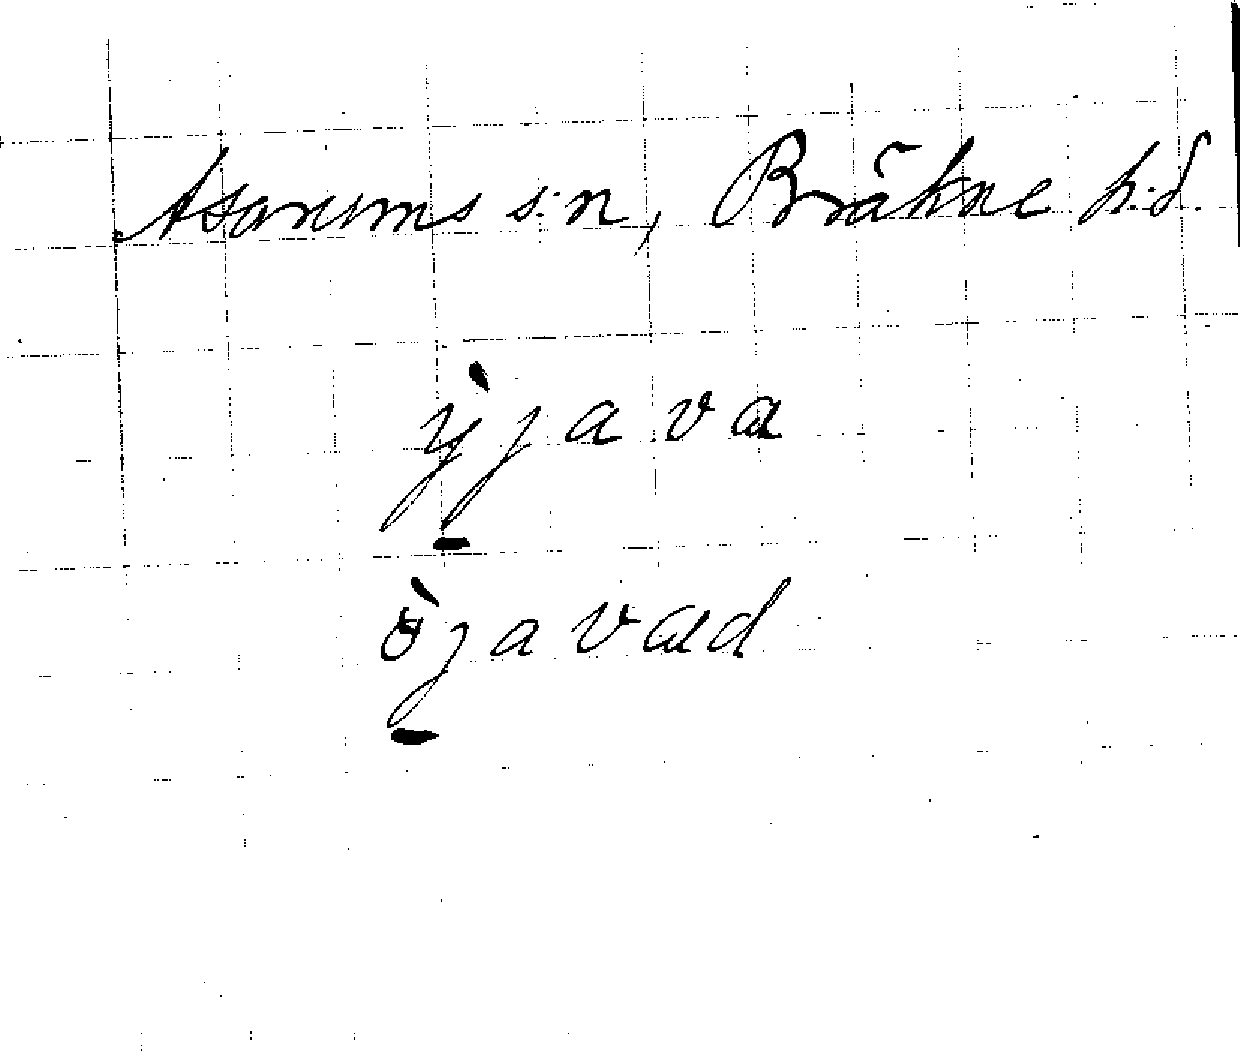 Asarums s:n, Bräkne h:d.
ỳjava
òjavad